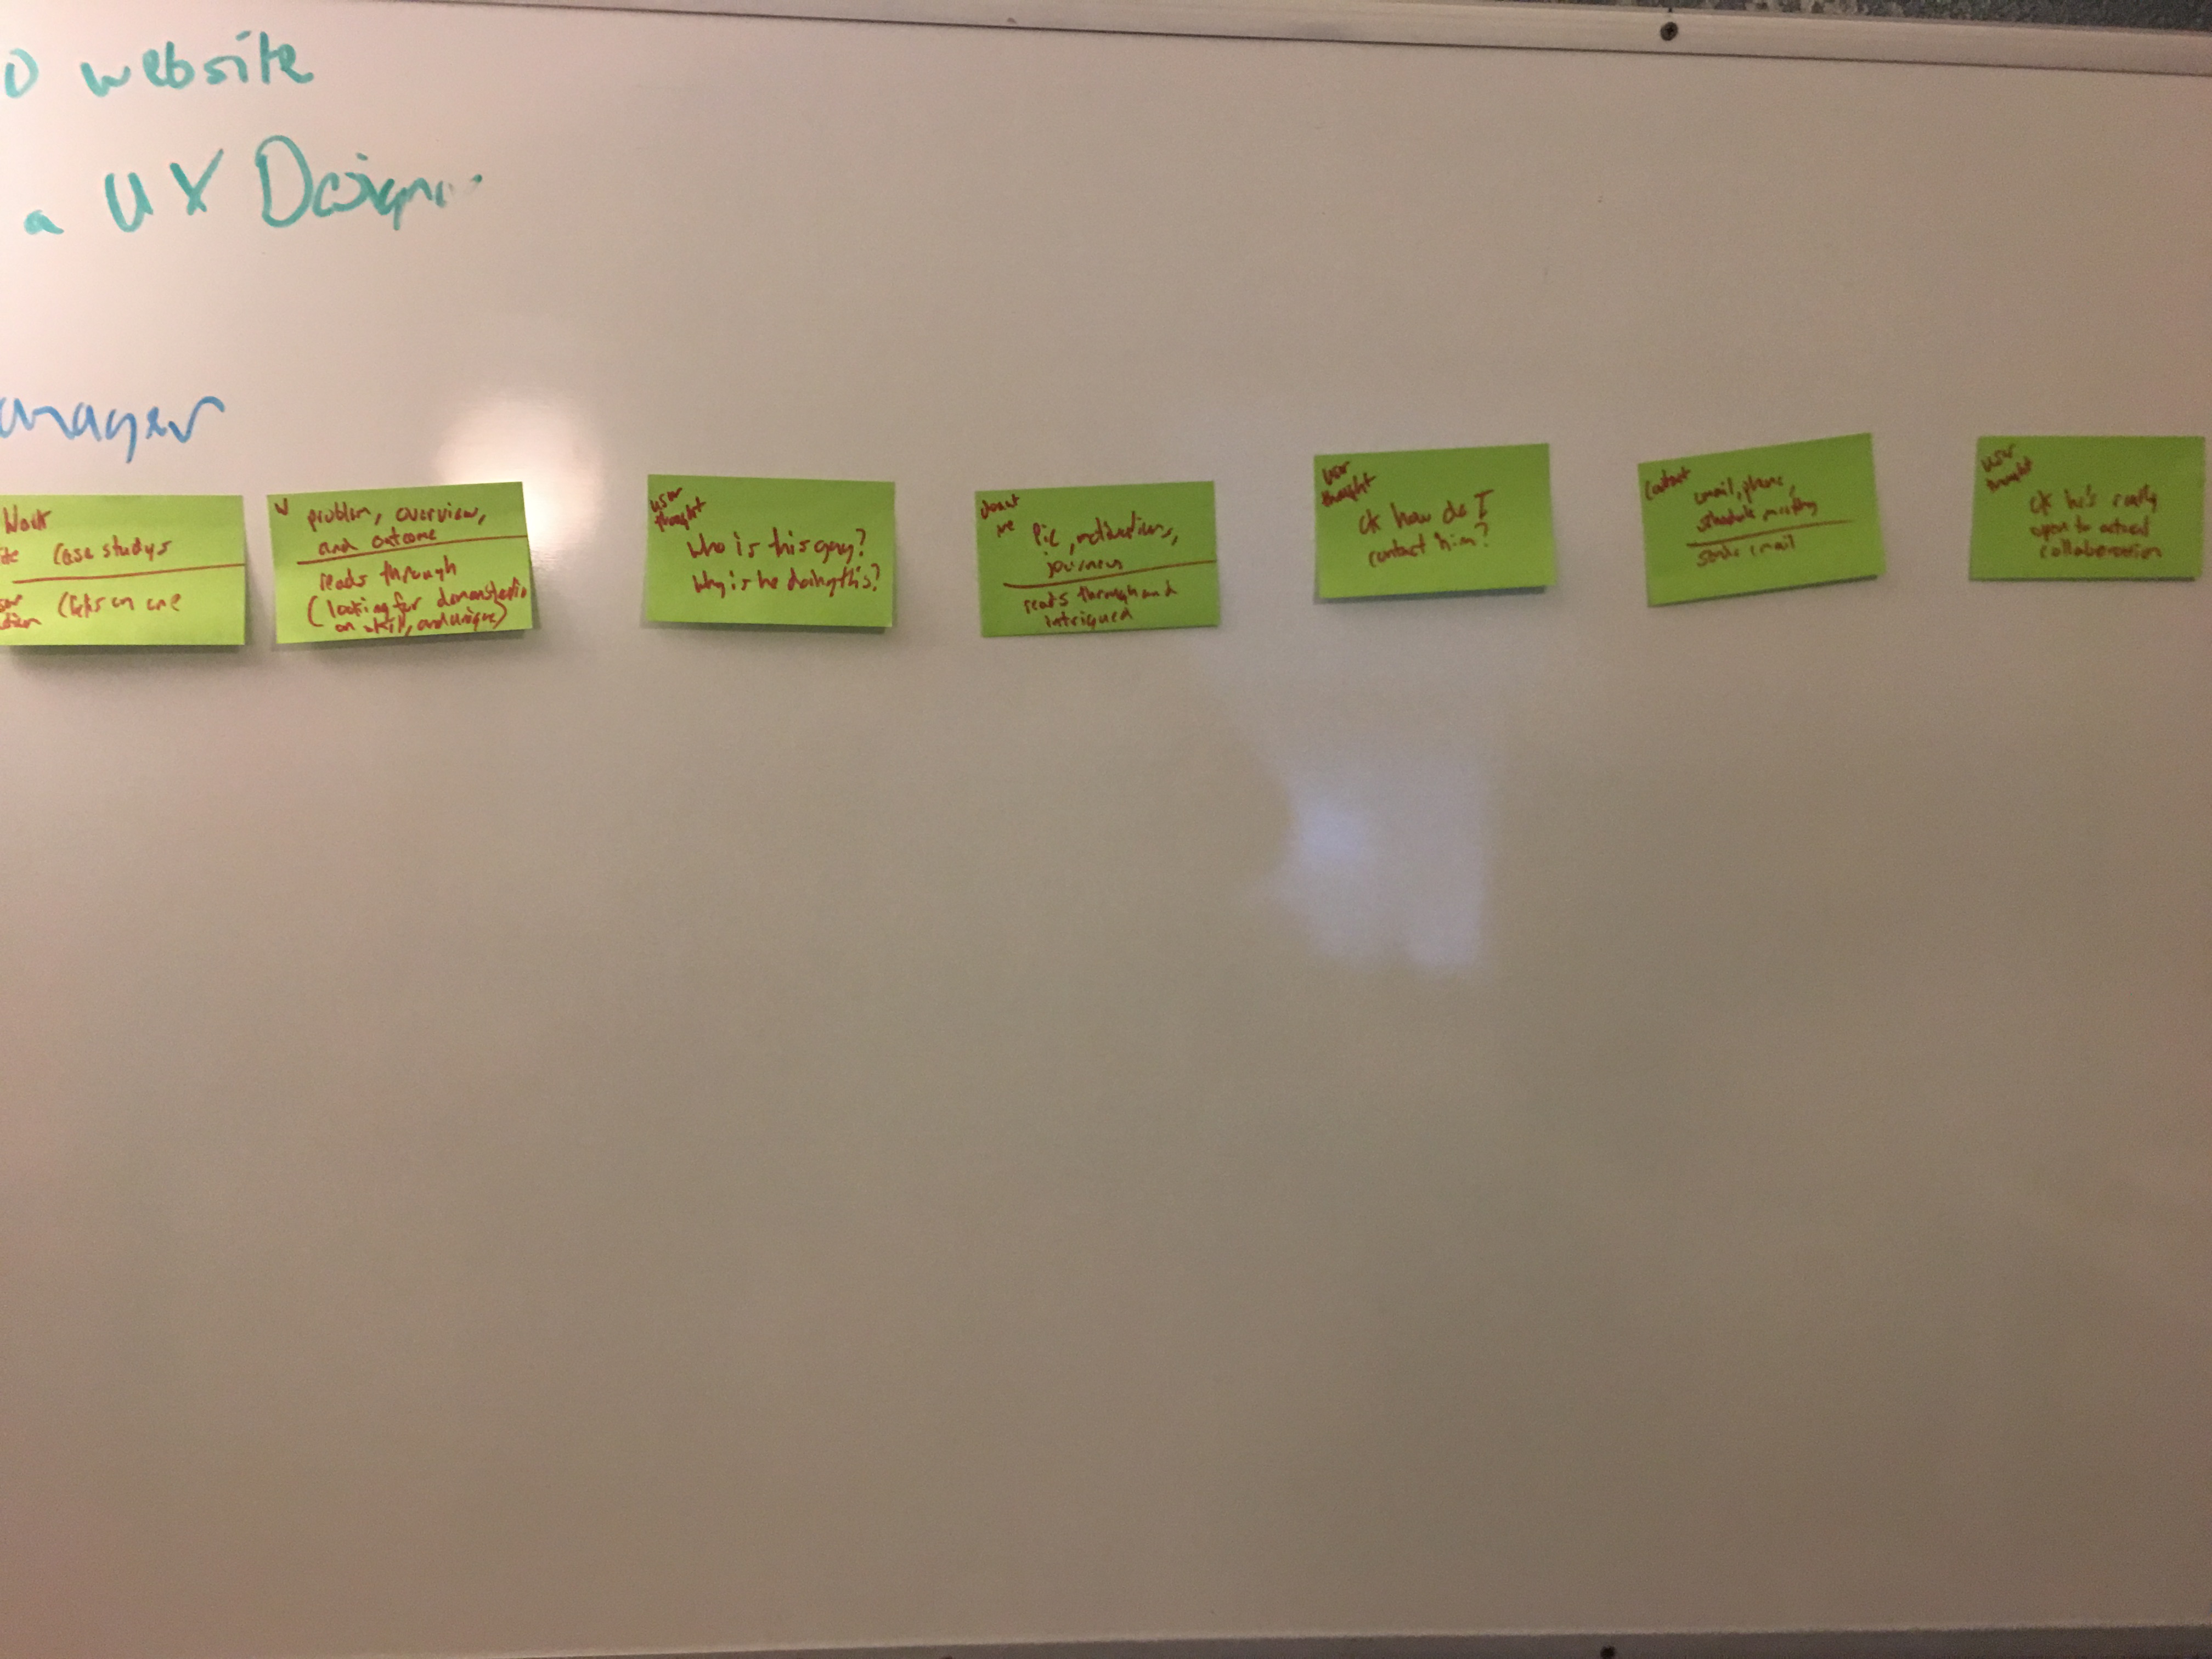 website
a UX Design
Work
Case studys
Clicks on one
problem, overview,
and outcome
reads through
(looking for demonstration
on skill, and unique)
user
thought
Who is this guy?
Why is he doing this?
me
Pic, motivations,
journey
reads through and
intrigued
user
thought
ok how do I
contact him?
Contact
email, phone,
schedule meeting
sends email
user
thought
ok he's really
open to actual
collaboration